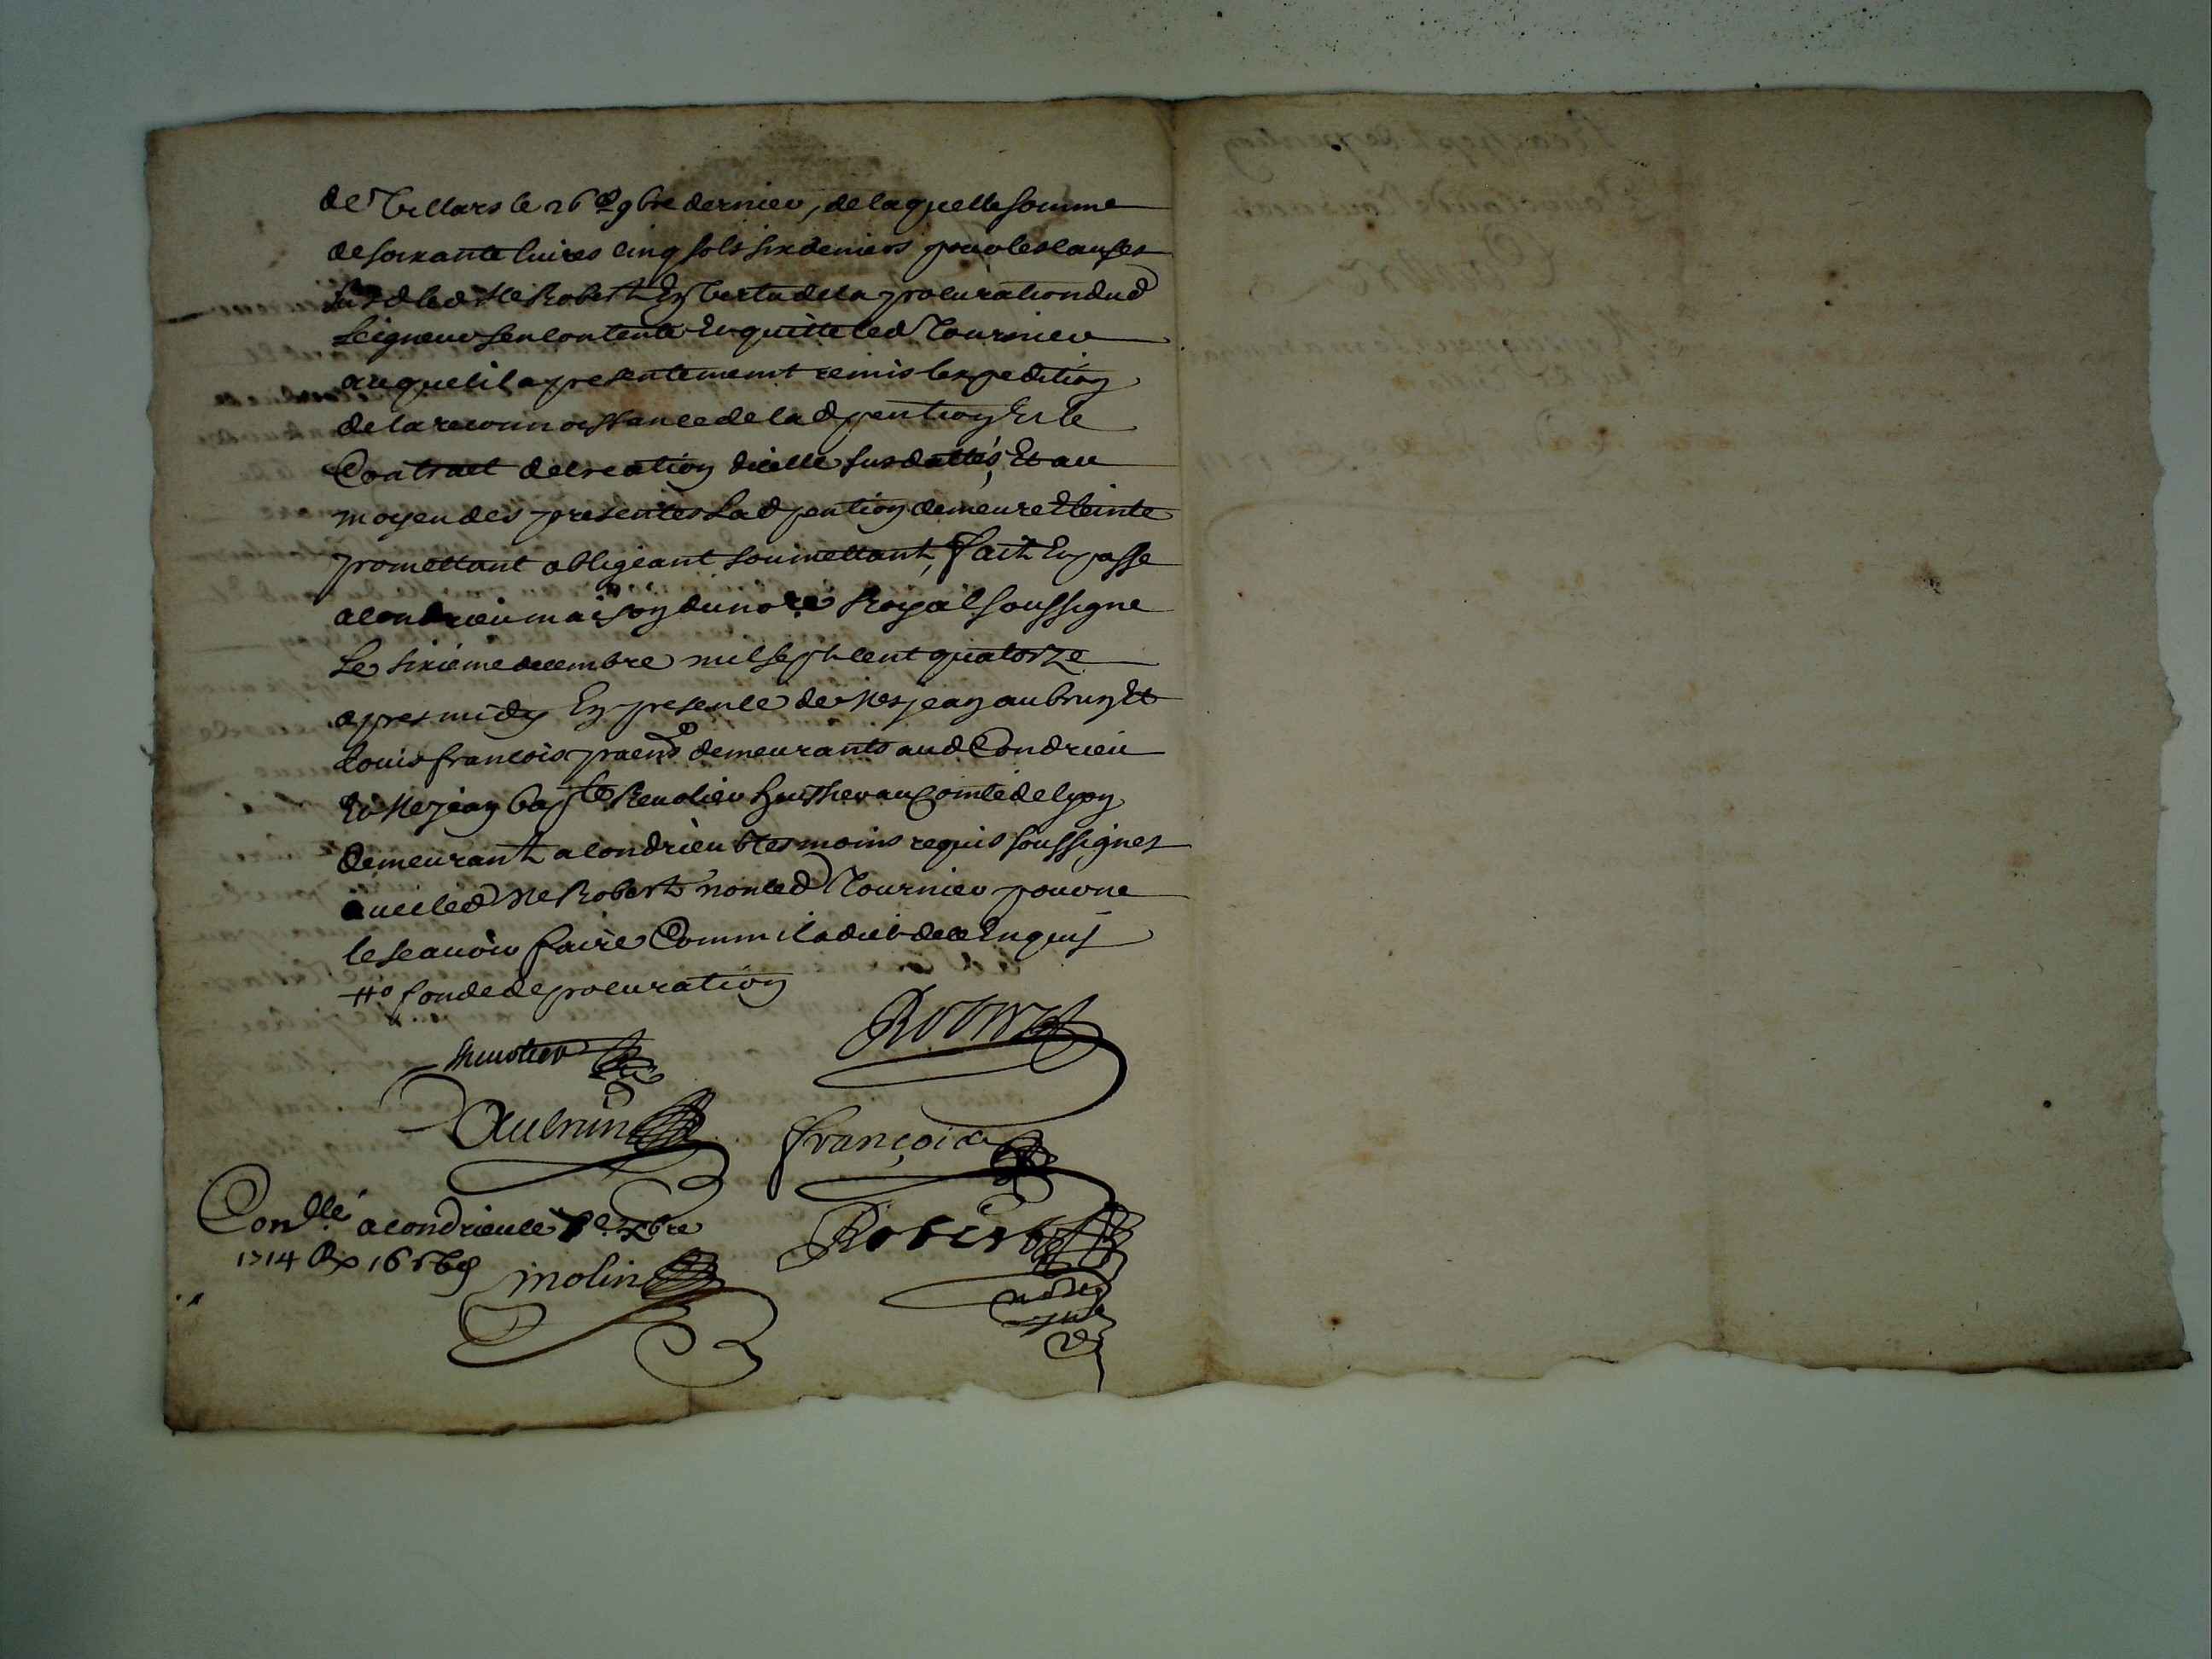 de Villars le 26e 9bre dernier, de laquelle somme
de soixante livres cinq sols six deniers pour les causes
susd led Me Robert En Vertu de la procuration dud
seigneur sen contente Et quitte led Tournier
auquel il a presentement remis lexpedition
de la reconnoissance de lad pention Et le
Contract de creation dicelle susdattés, Et au
moyen des presentes Lad pention demeure Eteinte
promettant obligeant soumettant, fait Et passe
a condrieu maison du nore Royal soussigne
Le sixieme decembre mil sept cent quatorze
apres midy En presence de Mes jean aubrun Et
Louis francois demeurants aud Condrieu
Et Me jean bapte huissier au Comté de lyon
demeurant a condrieu tesmoins requis soussignes
avec led Me Robert non led Tournier pour ne
le scavoir faire Comm il a dit de ce Enquis
fonde de procuration
Robert
Aubrun
françois
Conllé a condrieu le 7e xbre
Robert
1714 Rx
molin